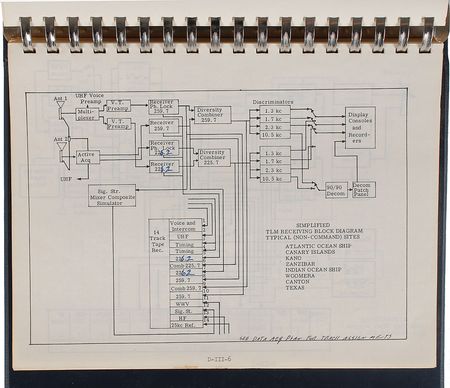 Ant 1
UHF Voice
Preamp
Multi-
plexer
V. T.
Preamp
V. T.
Preamp
Receiver
Ph. Lock
259.7
Receiver
259.7
Diversity
Combiner
259.7
Discriminators
1.3 kc
1.7 kc
2.3 kc
10.5 kc
Display
Consoles
and
Record-
ers
Ant 2
Active
Acq
UHF
Receiver
Ph. Lock
Receiver
Diversity
Combiner
225.7
1.3 kc
1.7 kc
2.3 kc
10.5 kc
90/90
Decom
Decom
Patch
Panel
Sig. Str.
Mixer Composite
Simulator
14
Track
Tape
Rec.
Voice and
Intercom
UHF
Timing
Timing
Comb 225.7
259.7
Comb 259.7
259.7
WWV
Sig. St.
HF
25kc Ref.
SIMPLIFIED
TLM RECEIVING BLOCK DIAGRAM
TYPICAL (NON-COMMAND) SITES
ATLANTIC OCEAN SHIP
CANARY ISLANDS
KANO
ZANZIBAR
INDIAN OCEAN SHIP
WOOMERA
CANTON
TEXAS
DATA ACQ PLAN FOR TRACK ASSIGN
D-III-6